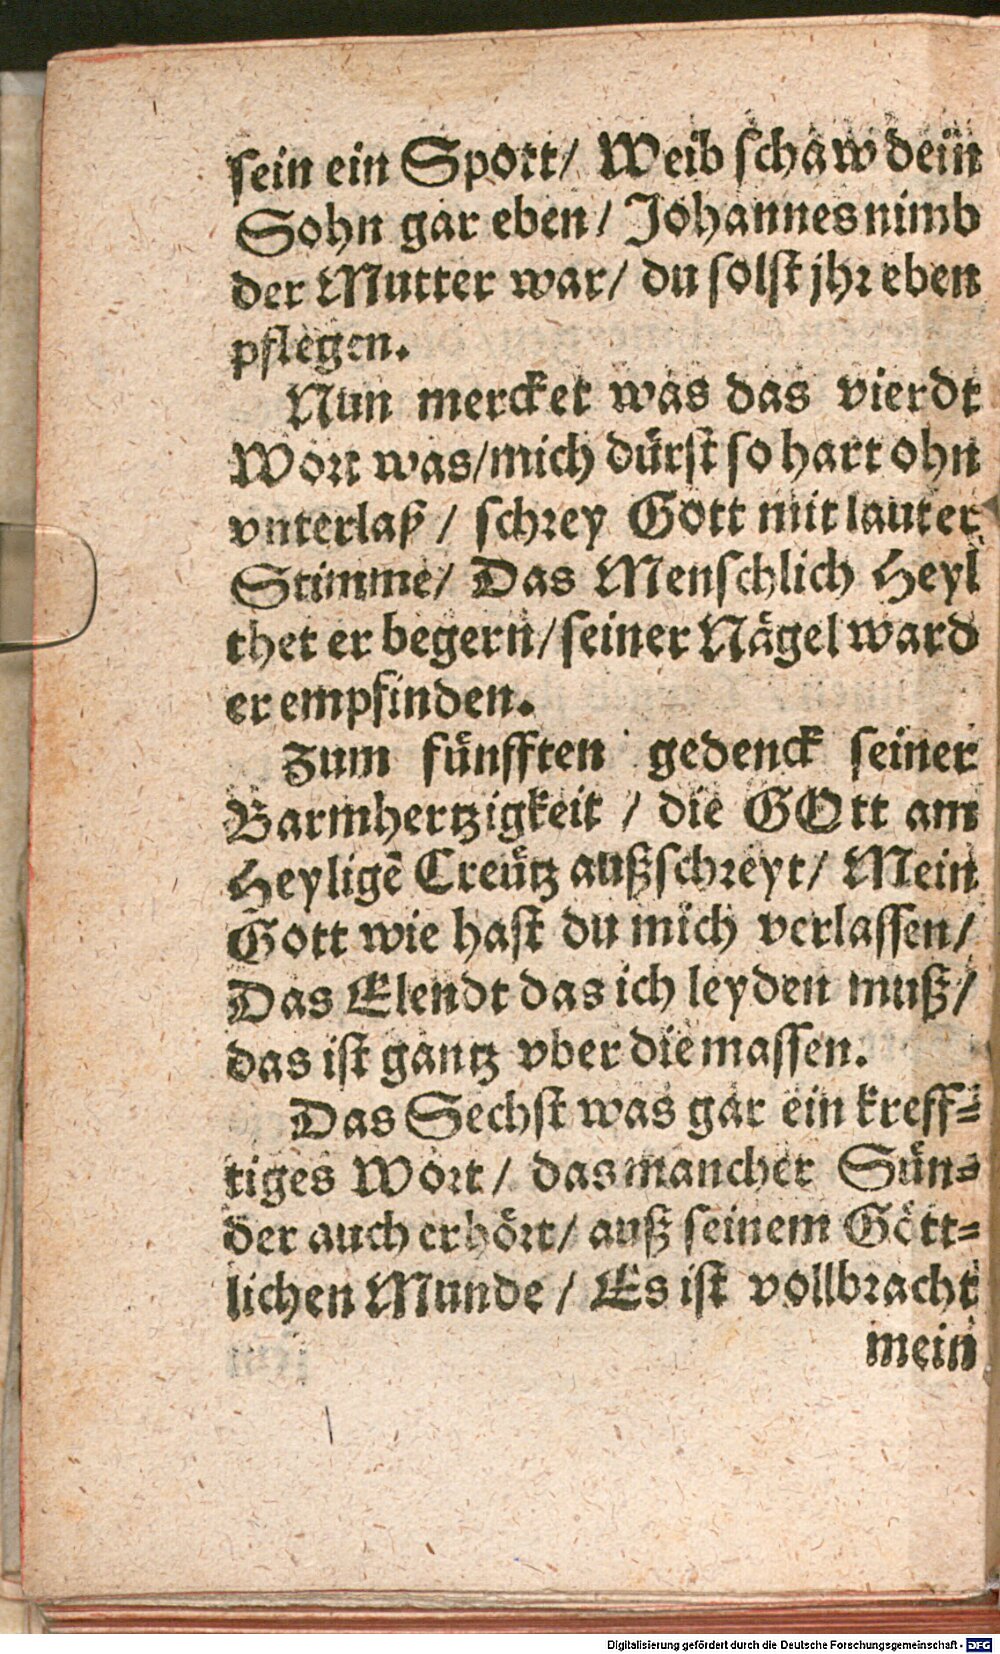 sein ein Spott/ Weib schaw dein
Sohn gar eben/ Johannes nimb
der Mutter war/ du solst jhr eben
pflegen.
Nun mercket was das vierdt
Wort was/mich dürst so hart ohn
vnterlaß/ schrey Gott mit lauter
Stimme/ Das Menschlich Heyl
thet er begern/seiner Nägel ward
er empfinden.
Zum fünfften gedenck seiner
Barmhertzigkeit / die GOtt am
Heyligē Creütz außschreyt/ Mein
Gott wie hast du mich verlassen/
Das Elendt das ich leyden muß/
das ist gantz vber die massen.
Das Sechst was gar ein kreff-
tiges Wort/ das mancher Sün-
der auch erhört/ auß seinem Gött-
lichen Munde/ Es ist vollbracht
mein
Digitalisierung gefördert durch die Deutsche Forschungsgemeinschaft - DFG